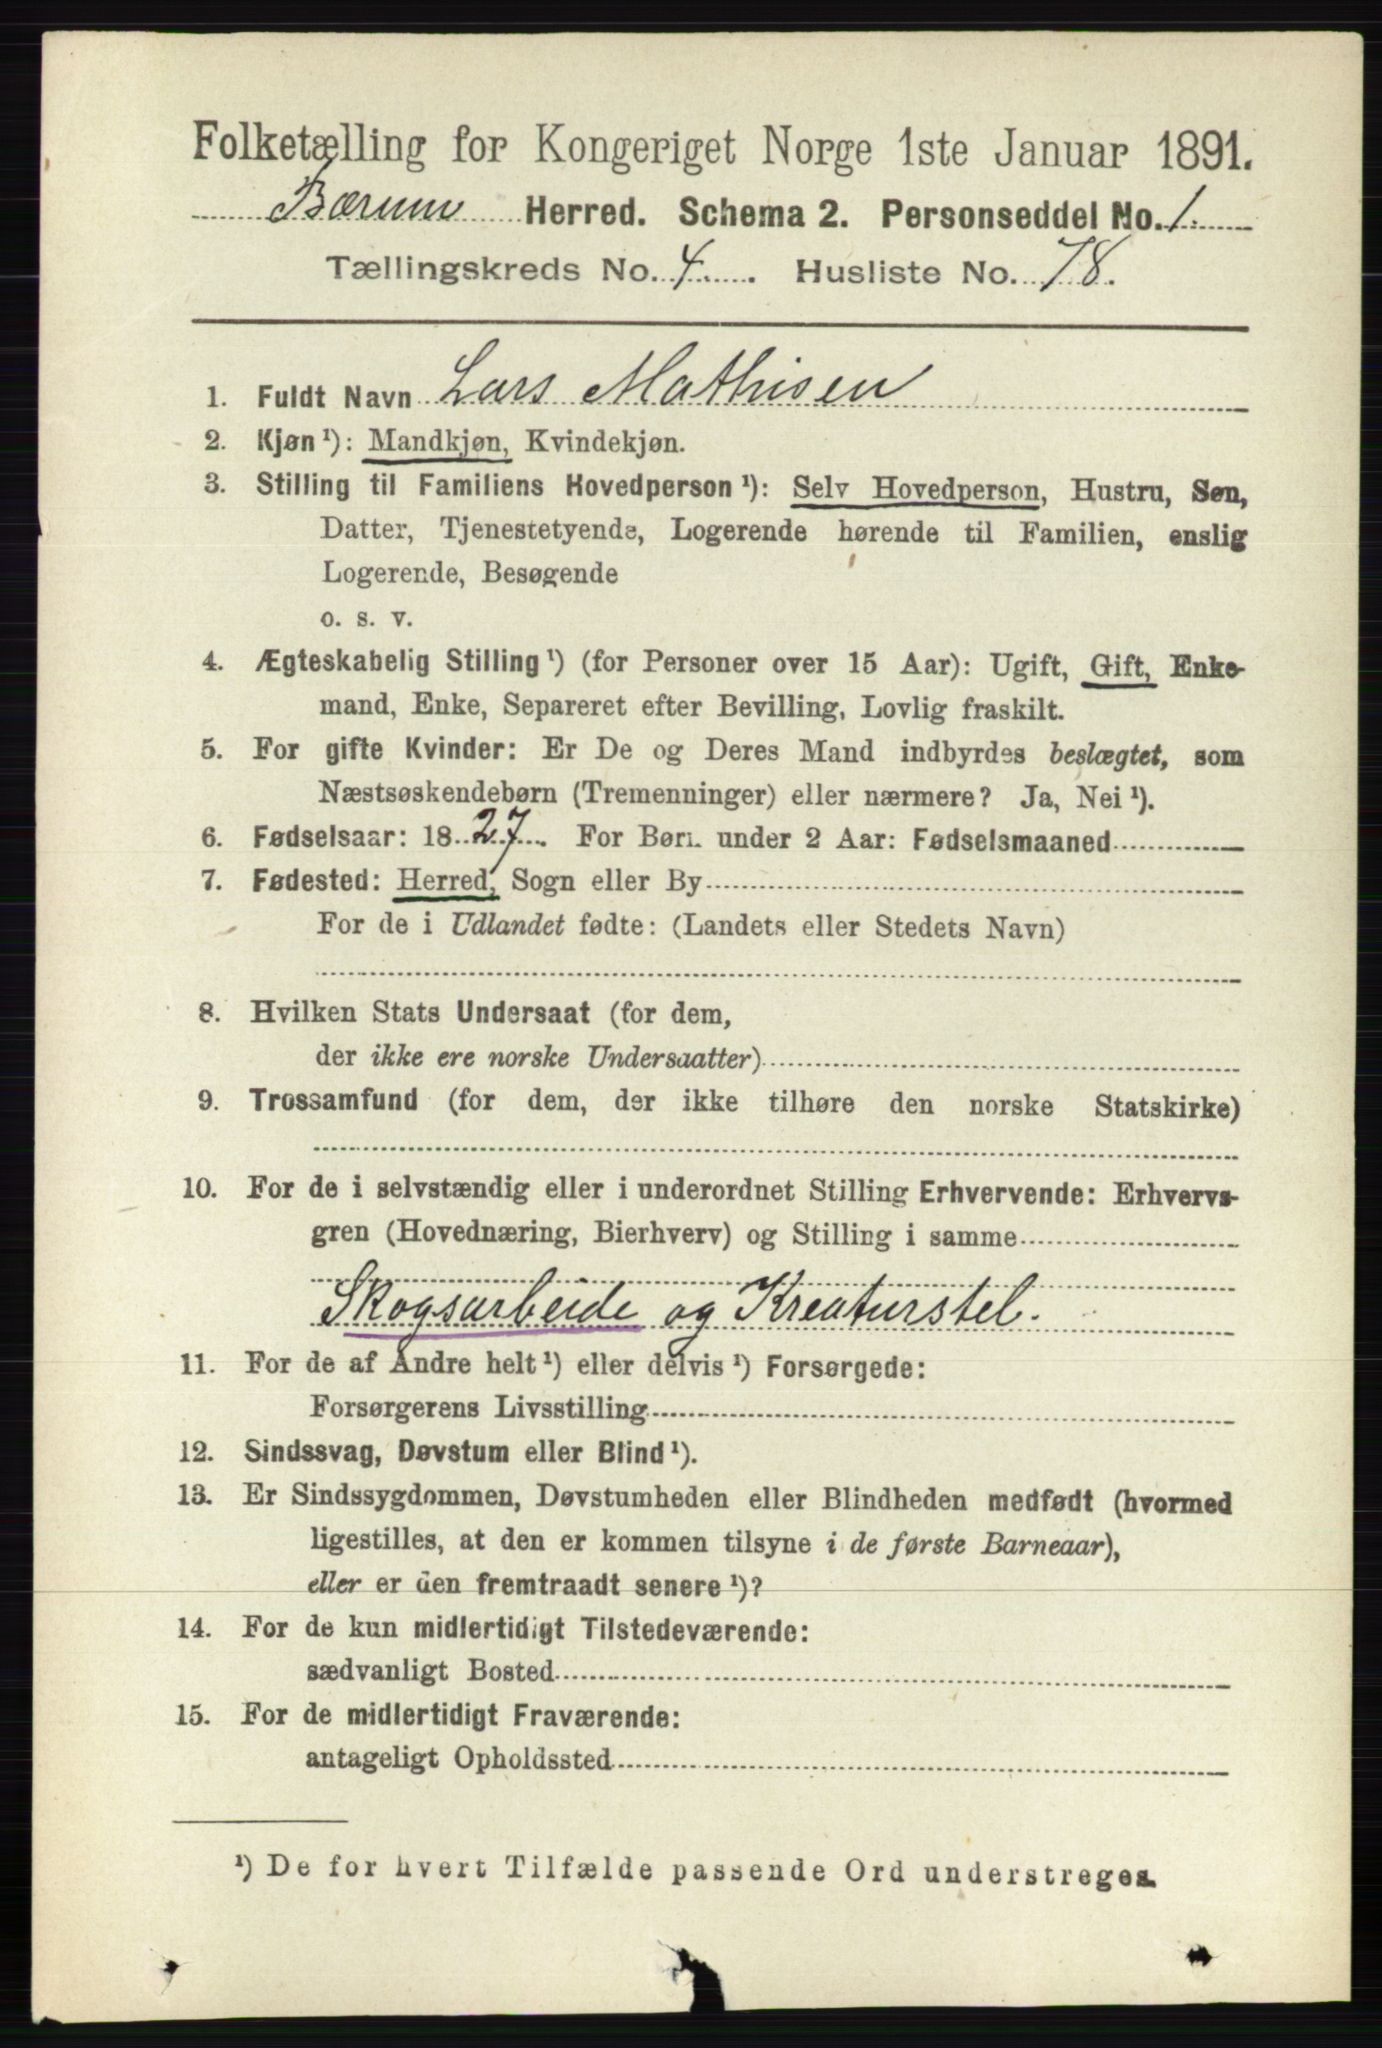 Folketælling for Kongeriget Norge 1ste Januar 1891.
Bærum Herred. Schema 2. Personseddel No. 1.
Tællingskreds No. 4. Husliste No. 78.
1. Fuldt Navn Lars Mathisen
2. Kjøn ¹): Mandkjøn, Kvindekjøn.
3. Stilling til Familiens Hovedperson ¹): Selv Hovedperson, Hustru, Søn,
Datter, Tjenestetyende, Logerende hørende til Familien, enslig
Logerende, Besøgende
o. s. v.
4. Ægteskabelig Stilling ¹) (for Personer over 15 Aar): Ugift, Gift, Enke-
mand, Enke, Separeret efter Bevilling, Lovlig fraskilt.
5. For gifte Kvinder: Er De og Deres Mand indbyrdes beslægtet, som
Næstsøskendebørn (Tremenninger) eller nærmere? Ja, Nei ¹).
6. Fødselsaar: 1827. For Børn under 2 Aar: Fødselsmaaned
7. Fødested: Herred, Sogn eller By
For de i Udlandet fødte: (Landets eller Stedets Navn)
8. Hvilken Stats Undersaat (for dem,
der ikke ere norske Undersaatter)
9. Trossamfund (for dem, der ikke tilhøre den norske Statskirke)
10. For de i selvstændig eller i underordnet Stilling Erhvervende: Erhvervs-
gren (Hovednæring, Bierhverv) og Stilling i samme
Skogsarbeide og Kreaturstel.
11. For de af Andre helt ¹) eller delvis ¹) Forsørgede:
Forsørgerens Livsstilling
12. Sindssvag, Døvstum eller Blind ¹).
13. Er Sindssygdommen, Døvstumheden eller Blindheden medfødt (hvormed
ligestilles, at den er kommen tilsyne i de første Barneaar),
eller er den fremtraadt senere ¹)?
14. For de kun midlertidigt Tilstedeværende:
sædvanligt Bosted
15. For de midlertidigt Fraværende:
antageligt Opholdssted
¹) De for hvert Tilfælde passende Ord understreges.